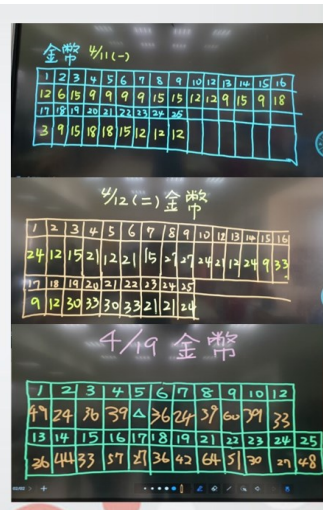 金幣 4/11(一)
1 2 3 4 5 6 7 8 9 10 12 13 14 15 16
12 6 15 9 9 9 9 15 15 12 12 9 15 9 18
17 18 19 20 21 22 23 24 25
3 9 15 18 18 15 12 12 12
4/12(二)金幣
1 2 3 4 5 6 7 8 9 10 12 13 14 15 16
24 12 15 21 12 21 15 27 27 24 21 12 24 9 33
17 18 19 20 21 22 23 24 25
9 12 30 33 30 33 21 21 24
4/19 金幣
1 2 3 4 5 6 7 8 9 10 12
49 24 36 39 △ 36 24 39 60 39 33
13 14 15 16 17 18 19 21 22 23 24 25
36 44 33 57 27 36 42 64 51 30 27 48